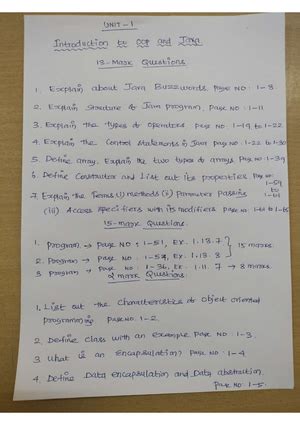 UNIT-1
Introduction to OOP and Java
13-Mark Questions
1. Explain about Java Buzzwords. Page NO: 1-8
2. Explain Structure of Java program. Page NO: 1-11
3. Explain the types of operators. Page NO: 1-19 to 1-22
4. Explain the Control Statements in Java Page NO: 1-22 to 1-30
5. Define array. Explain the two types of arrays Page NO: 1-39
6. Define Constructor and List out its properties Page NO: 1-59 to
7. Explain the Terms (i) methods (ii) Parameter Passing 1-61
(iii) Access specifiers with its modifiers Page NO: 1-61 to 1-65
15-mark Questions.
1. Program → Page NO: 1-51, Ex. 1.13.7
2. Program → Page NO: 1-54, Ex. 1.13.8 } 15 marks.
3 program → Page NO: 1-36, Ex. 1.11.7 → 8 marks.
2 mark Questions.
1. List out the characteristics of object oriented
programming Page NO: 1-2.
2. Define class with an example Page NO: 1-3.
3. What is an encapsulation? Page NO: 1-4
4. Define Data encapsulation and Data abstraction.
Page NO: 1-5.